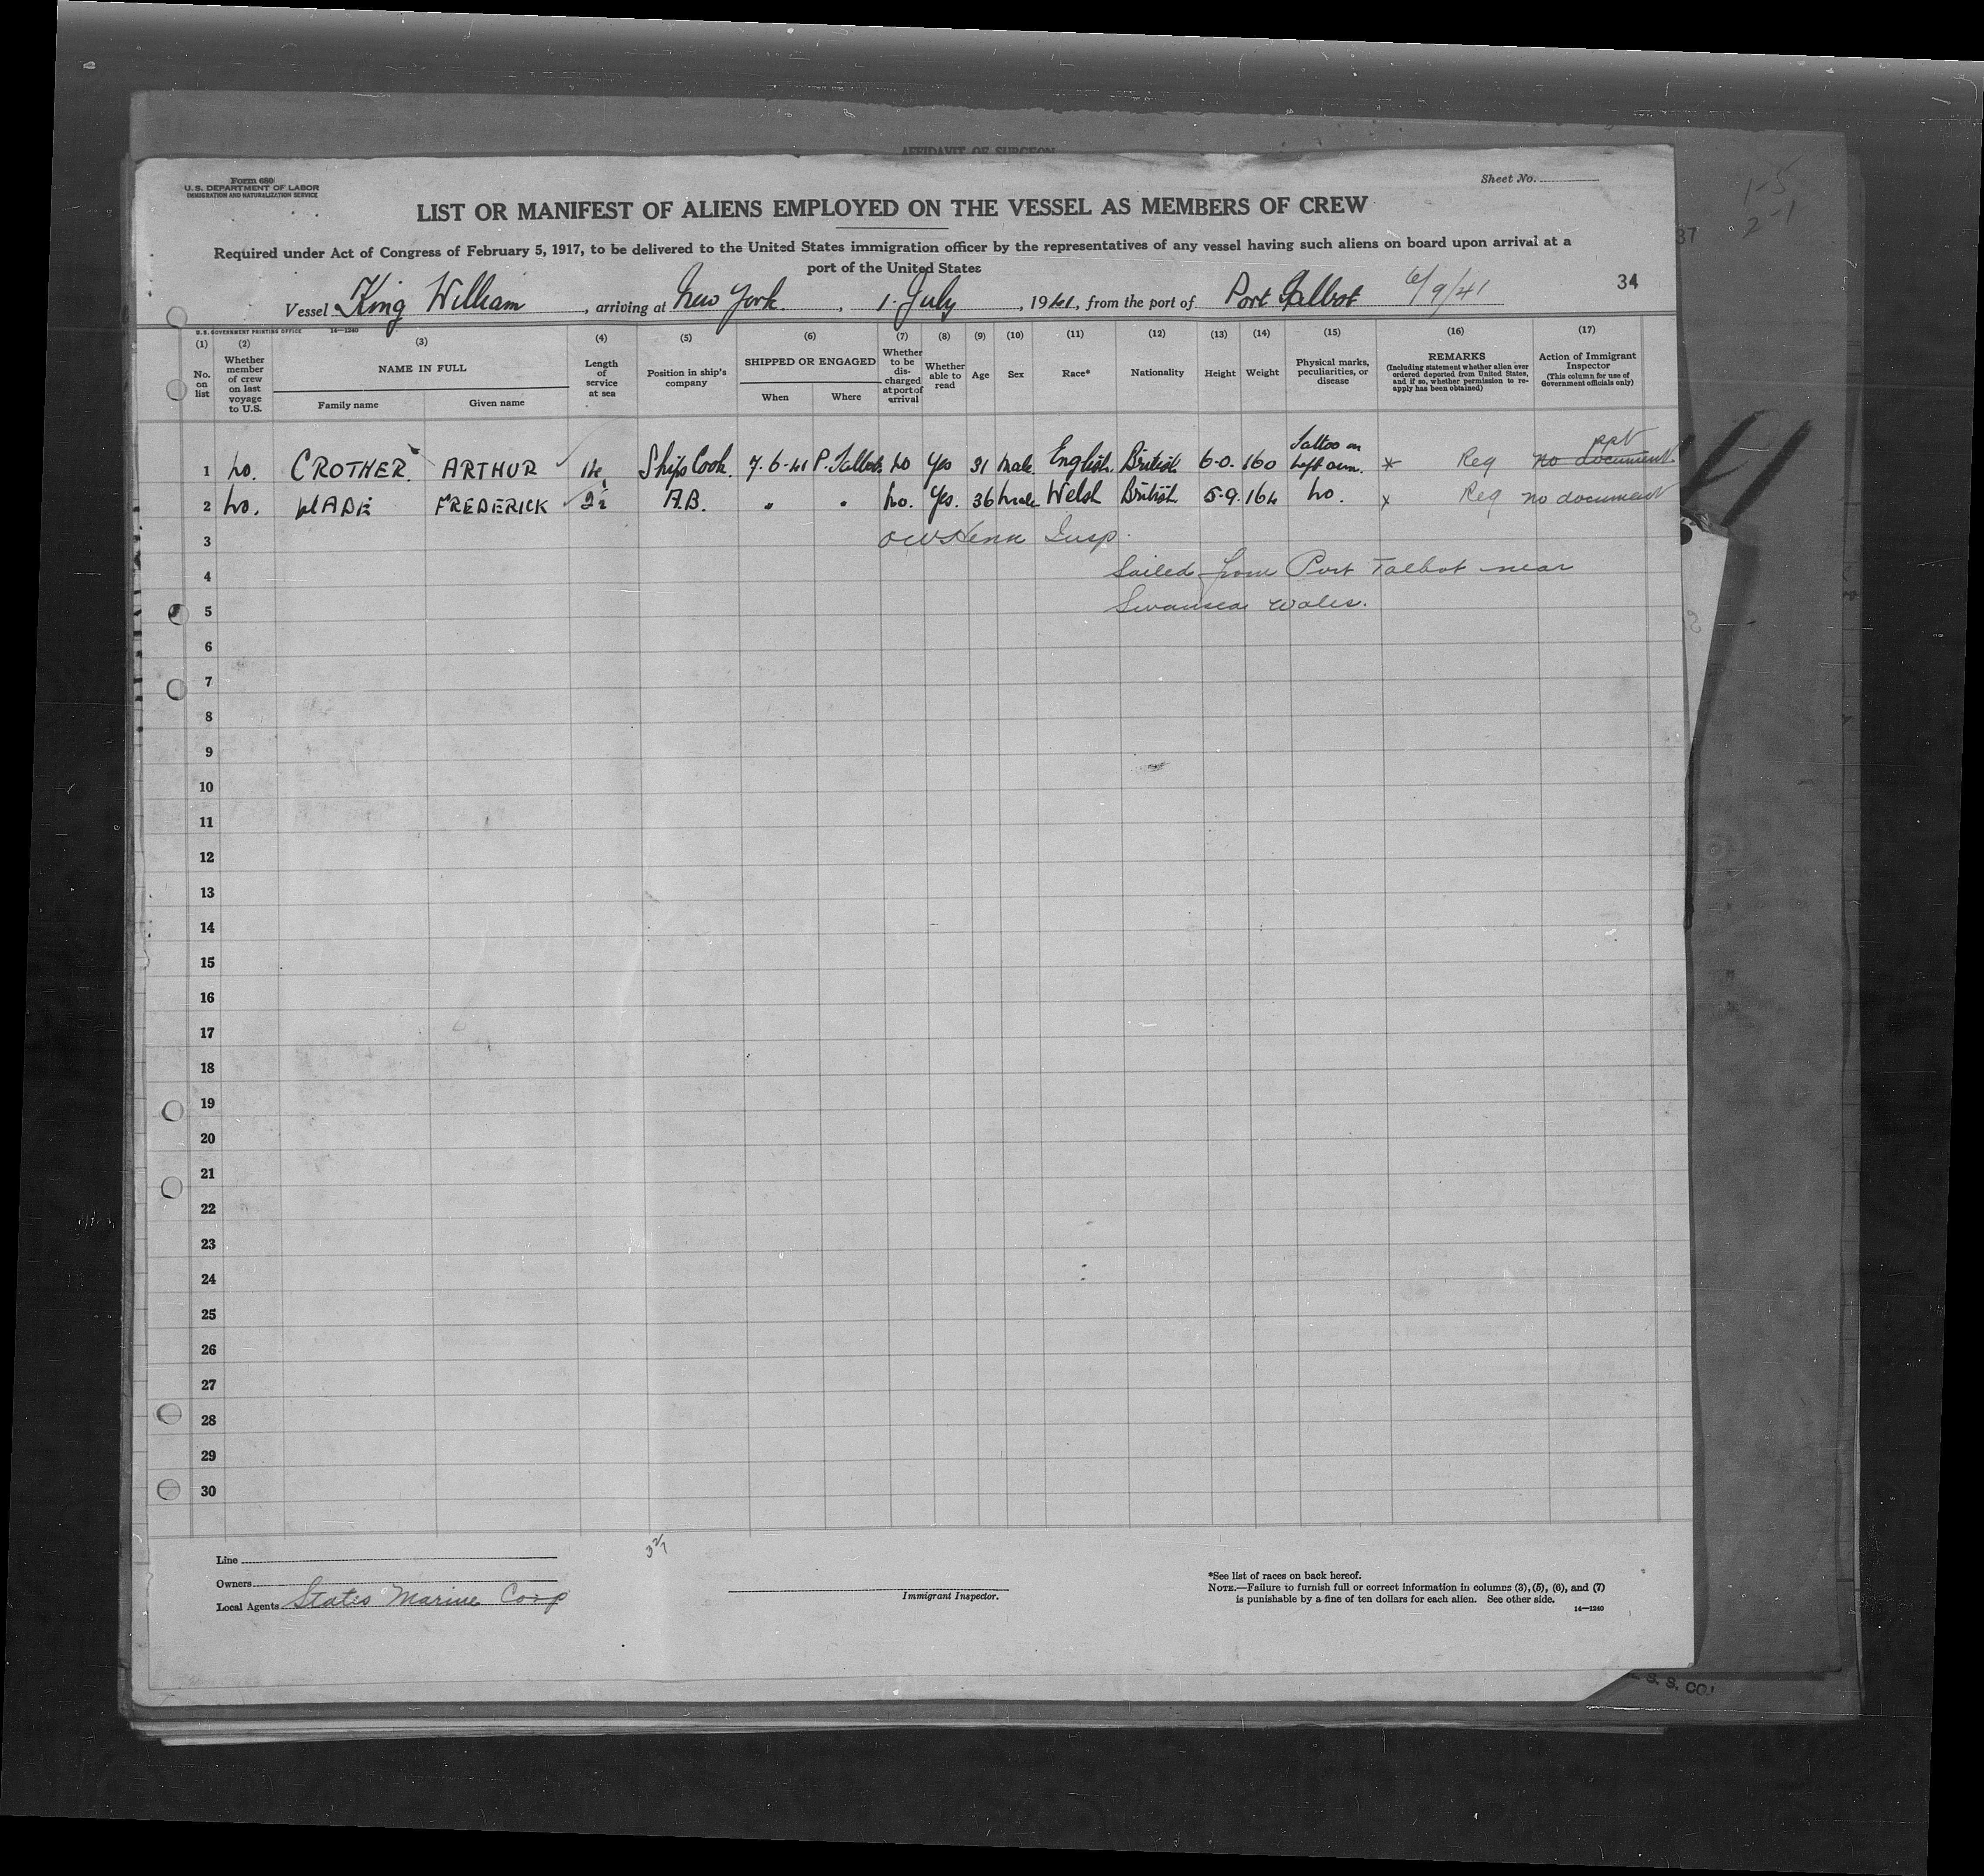 AFFIDAVIT OF SURGEON
Form 680
U.S. DEPARTMENT OF LABOR
IMMIGRATION AND NATURALIZATION SERVICE
Sheet No.
1-5
2-1
37
LIST OR MANIFEST OF ALIENS EMPLOYED ON THE VESSEL AS MEMBERS OF CREW
Required under Act of Congress of February 5, 1917, to be delivered to the United States immigration officer by the representatives of any vessel having such aliens on board upon arrival at a
port of the United States
34
Vessel King William, arriving at New York., 1. July, 1941, from the port of Port Talbot 6/9/41
U.S. GOVERNMENT PRINTING OFFICE 14—1240
(1) (2) (3) (4) (5) (6) (7) (8) (9) (10) (11) (12) (13) (14) (15) (16) (17)
No. on list
Whether member of crew on last voyage to U.S.
NAME IN FULL
Family name Given name
Length of service at sea
Position in ship's company
SHIPPED OR ENGAGED
When Where
Whether to be discharged at port of arrival
Whether able to read
Age
Sex
Race*
Nationality
Height
Weight
Physical marks, peculiarities, or disease
REMARKS
(Including statement whether alien ever ordered deported from United States, and if so, whether permission to reapply has been obtained)
Action of Immigrant Inspector
(This column for use of Government officials only)
1 No. CROTHER. ARTHUR 14 Ships Cook. 7.6-41 P. Talbot. No Yes 31 Male. English. British 6-0. 160 Tattoo on Left arm. Req no document. ppt
2 No. WADE FREDERICK A.B. " " No. Yes. 36 Male Welsh British 5-9. 164 No. x Req no document
3 Insp.
4 Sailed from Port Talbot near
5 Swansea Wales.
6
7
8
9
10
11
12
13
14
15
16
17
18
19
20
21
22
23
24
25
26
27
28
29
30
Line
Owners
Local Agents States Marine Corp
Immigrant Inspector.
*See list of races on back hereof.
NOTE.—Failure to furnish full or correct information in columns (3), (5), (6), and (7)
is punishable by a fine of ten dollars for each alien. See other side.
14—1240
S. S. CO.